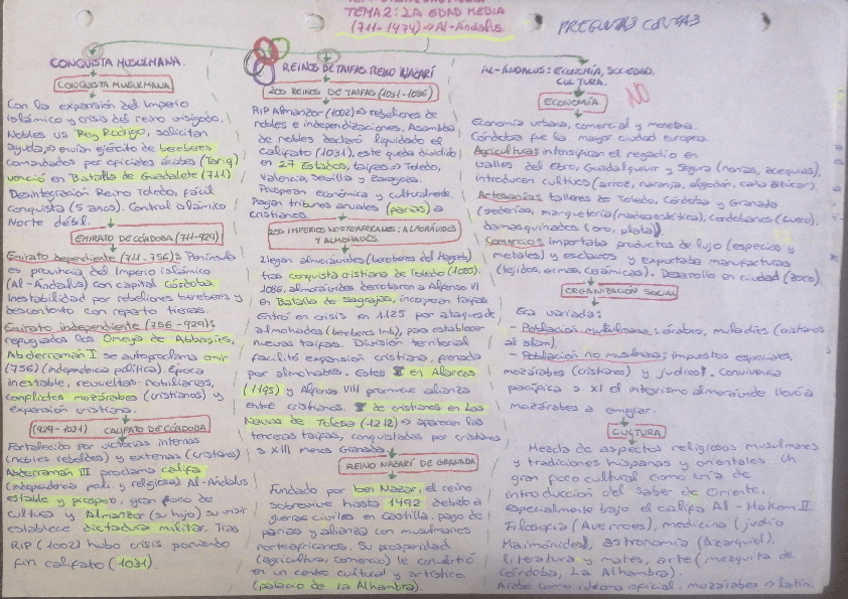 TEMA 2: LA EDAD MEDIA
(711-1474) → Al-Ándalus
PREGUNTAS CORTAS
CONQUISTA MUSULMANA.
CONQUISTA MUSULMANA
Con la expansión del Imperio
islámico y crisis del reino visigodo.
Nobles vs Rey Rodrigo, solicitan
ayuda, → envían ejército de bereberes
comandados por oficiales árabes (Tariq)
venció en Batalla de Guadalete (711)
Desintegración Reino Toledo, fácil
conquista (5 anos). Control islámico
Norte débil.
EMIRATO DE CÓRDOBA (711-929)
Emirato dependiente (711-756): Península
es provincia del Imperio islámico
(Al-Ándalus) con capital Córdoba
Inestabilidad por rebeliones bereberes y
descontento con reparto tierras.
Emirato independiente (756-929):
refugiados los Omeya de Abbasíes,
Abderramán I se autoproclama emir
(756) (independencia política). Época
inestable, revueltas nobiliarias,
conflictos mozárabes (cristianos) y
expansión cristiana.
(929-1031) CALIFATO DE CÓRDOBA
Fortalecido por victorias internas
(nobles rebeldes) y externas (cristianos)
Abderramán III proclama califa
(independencia polí. y religiosa) Al-Ándalus
estable y próspero, gran foco de
cultura y Almanzor (su hijo) su visir
establece dictadura militar. Tras
RIP (1002) hubo crisis poniendo
fin califato (1031).
REINOS DE TAIFAS. REINO NAZARÍ
LOS REINOS DE TAIFAS (1031-1086)
RIP Almanzor (1002) → rebeliones de
nobles e independizaciones. Asamblea
de nobles declaró liquidado el
califato (1031), este queda dividido
en 27 Estados, taifas → Toledo,
Valencia, Sevilla y Zaragoza.
Prosperan económica y culturalmente.
Pagan tributos anuales (parias) a
cristianos.
LOS IMPERIOS NORTEAFRICANOS: ALMORÁVIDES
Y ALMOHADES
Llegan almorávides (bereberes del Magreb)
tras conquista cristiana de Toledo (1085).
1086, almorávides derrotaron a Alfonso VI
en Batalla de Sagrajas, incorporan taifas
Entró en crisis en 1125 por ataques de
almohades (bereberes), para establecer
nuevas taifas. División territorial
facilitó expansión cristiana, frenada
por almohades. Estos en Alarcos
(1195) y Alfonso VIII promueve alianza
entre cristianos. de cristianos en Las
Navas de Tolosa (1212) → aparecen las
terceras taifas, conquistadas por cristianos
s XIII menos Granada.
REINO NAZARÍ DE GRANADA
Fundado por ben Nazar, el reino
sobrevive hasta 1492 debido a
guerras civiles en Castilla, pago de
parias y alianza con musulmanes
norteafricanos. Su prosperidad
(agricultura, comercio) le convirtió
en un centro cultural y artístico
(palacio de La Alhambra)
AL-ÁNDALUS: ECONOMÍA, SOCIEDAD.
CULTURA.
NO
ECONOMÍA
Economía urbana, comercial y monetaria.
Córdoba fue la mayor ciudad europea.
Agricultura: intensifican el regadío en
valles del Ebro, Guadalquivir y Segura (norias, acequias),
introducen cultivos (arroz, naranja, algodón, caña azúcar).
Artesanías: talleres de Toledo, Córdoba y Granada
(sederías, marquetería (madera estética), cordobanes (cuero),
damasquinados (oro, plata)).
Comercio: importaba productos de lujo (especias y
metales) y esclavos y exportaba manufacturas
(tejidos, armas, cerámicas). Desarrollo en ciudad (zoco).
ORGANIZACIÓN SOCIAL
Era variada:
- Población musulmana: árabes, muladíes (cristianos
al islam).
- Población no musulmana: impuestos especiales,
mozárabes (cristianos) y judíos. Convivencia
pacífica s. XI el integrismo almorávide llevó a
mozárabes a emigrar.
CULTURA
Mezcla de aspectos religiosos musulmanes
y tradiciones hispanas y orientales. Un
gran foco cultural como vía de
introducción del saber de Oriente,
especialmente bajo el califa Al-Hakam II.
Filosofía (Averroes), medicina (judío
Maimónides), astronomía (Azarquiel),
literatura y mates, arte (mezquita de
Córdoba, La Alhambra).
Árabe como idioma oficial, mozárabes → latín.